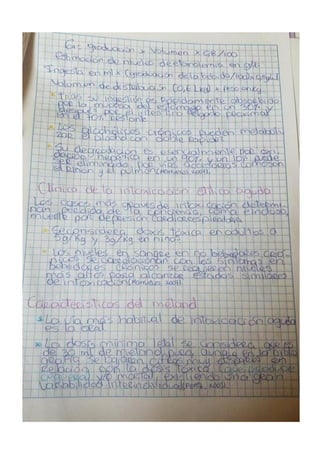 G: graduación x Volumen x 0,8/100
Estimación de niveles de etanolemia en g/l:
Ingesta en ml x (graduación de la bebida/100) x 0,8 g/ml
Volumen de distribución (0,6 l/kg) x Peso en kg
Tras su ingestión es rápidamente absorbido
por la mucosa del estómago en un 30%
y por el intestino delgado proximal
en el 70% restante
Los alcohólicos crónicos pueden metaboli-
zar el alcohol con doble rapidez
Su degradación es esencialmente por oxi-
dación hepática en un 90% y un 10% puede
ser eliminada por accesorias como son
el riñón y el pulmón
Clínica de la intoxicación etílica aguda
Los casos más graves de intoxicación determi-
nan pérdida de la conciencia, coma e incluso,
muerte por depresión cardiorrespiratoria.
Se considera dosis tóxica en adultos a
5g/kg y 3g/kg en niños
Los niveles en sangre en no bebedores cróni-
cos se correlacionan con los síntomas en
bebedores crónicos se requieren niveles
más altos para alcanzar estados similares
de intoxicación
Características del metanol
La vía más habitual de intoxicación aguda
es la oral
La dosis mínima letal se considera que es
de 30 ml de metanol puro, aunque en la biblio
se barajan cifras muy dispares en
relación con la dosis tóxica (que produce
y/o mortal, existiendo una gran
variabilidad interindividual